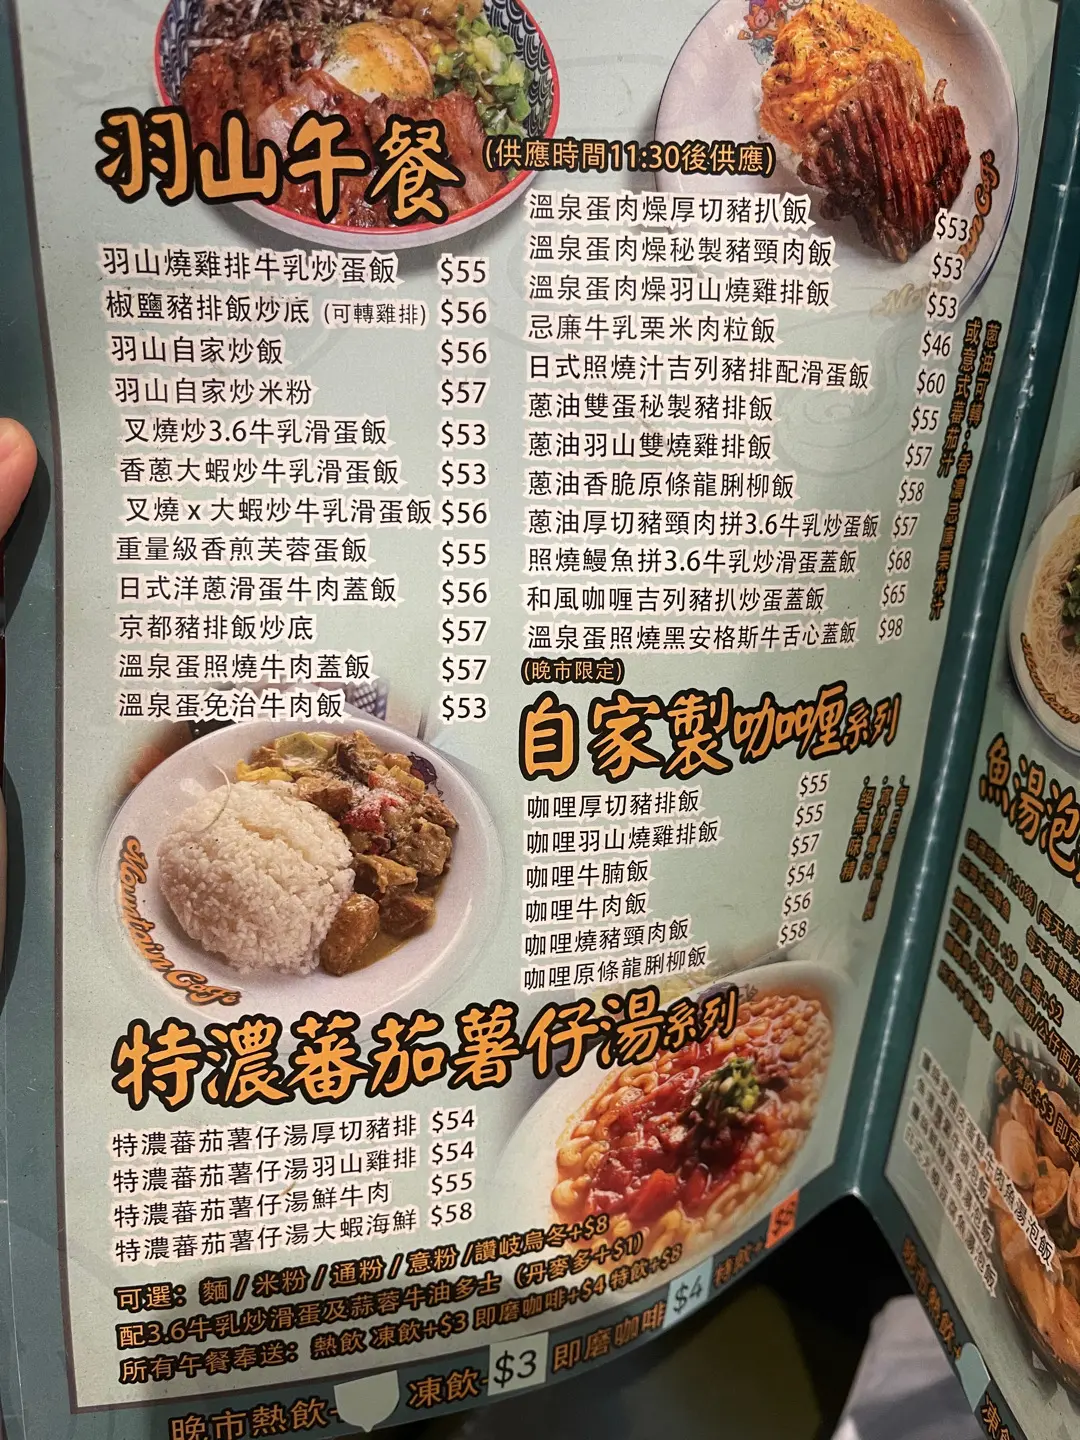 羽山午餐 (供應時間11:30後供應)
羽山燒雞排牛乳炒蛋飯 $55
椒鹽豬排飯炒底 (可轉雞排) $56
羽山自家炒飯 $56
羽山自家炒米粉 $57
叉燒炒3.6牛乳滑蛋飯 $53
香蔥大蝦炒牛乳滑蛋飯 $53
叉燒 x 大蝦炒牛乳滑蛋飯 $56
重量級香煎芙蓉蛋飯 $55
日式洋蔥滑蛋牛肉蓋飯 $56
京都豬排飯炒底 $57
溫泉蛋照燒牛肉蓋飯 $57
溫泉蛋免治牛肉飯 $53
溫泉蛋肉燥厚切豬扒飯 $53
溫泉蛋肉燥秘製豬頸肉飯 $53
溫泉蛋肉燥羽山燒雞排飯 $53
忌廉牛乳栗米肉粒飯 $46
日式照燒汁吉列豬排配滑蛋飯 $60
蔥油雙蛋秘製豬排飯 $55
蔥油羽山雙燒雞排飯 $57
蔥油香脆原條龍脷柳飯 $58
蔥油厚切豬頸肉拼3.6牛乳炒蛋飯 $57
照燒鰻魚拼3.6牛乳炒滑蛋蓋飯 $68
和風咖喱吉列豬扒炒蛋蓋飯 $65
溫泉蛋照燒黑安格斯牛舌心蓋飯 $98
(晚市限定)
蔥油可轉：香濃忌廉粟米汁
或意式蕃茄汁
自家製咖喱系列
咖哩厚切豬排飯 $55
咖哩羽山燒雞排飯 $55
咖哩牛腩飯 $57
咖哩牛肉飯 $54
咖哩燒豬頸肉飯 $56
咖哩原條龍脷柳飯 $58
絕無味精
Mountain Cafe
特濃蕃茄薯仔湯系列
特濃蕃茄薯仔湯厚切豬排 $54
特濃蕃茄薯仔湯羽山雞排 $54
特濃蕃茄薯仔湯鮮牛肉 $55
特濃蕃茄薯仔湯大蝦海鮮 $58
可選：麵 / 米粉 / 通粉 / 意粉 / 讚岐烏冬+$8
配3.6牛乳炒滑蛋及蒜蓉牛油多士（丹麥多+$1）
所有午餐奉送：熱飲 凍飲+$3 即磨咖啡+$4 特飲+$8
晚市熱飲+
凍飲+$3 即磨咖啡 $4 特飲+
魚湯泡